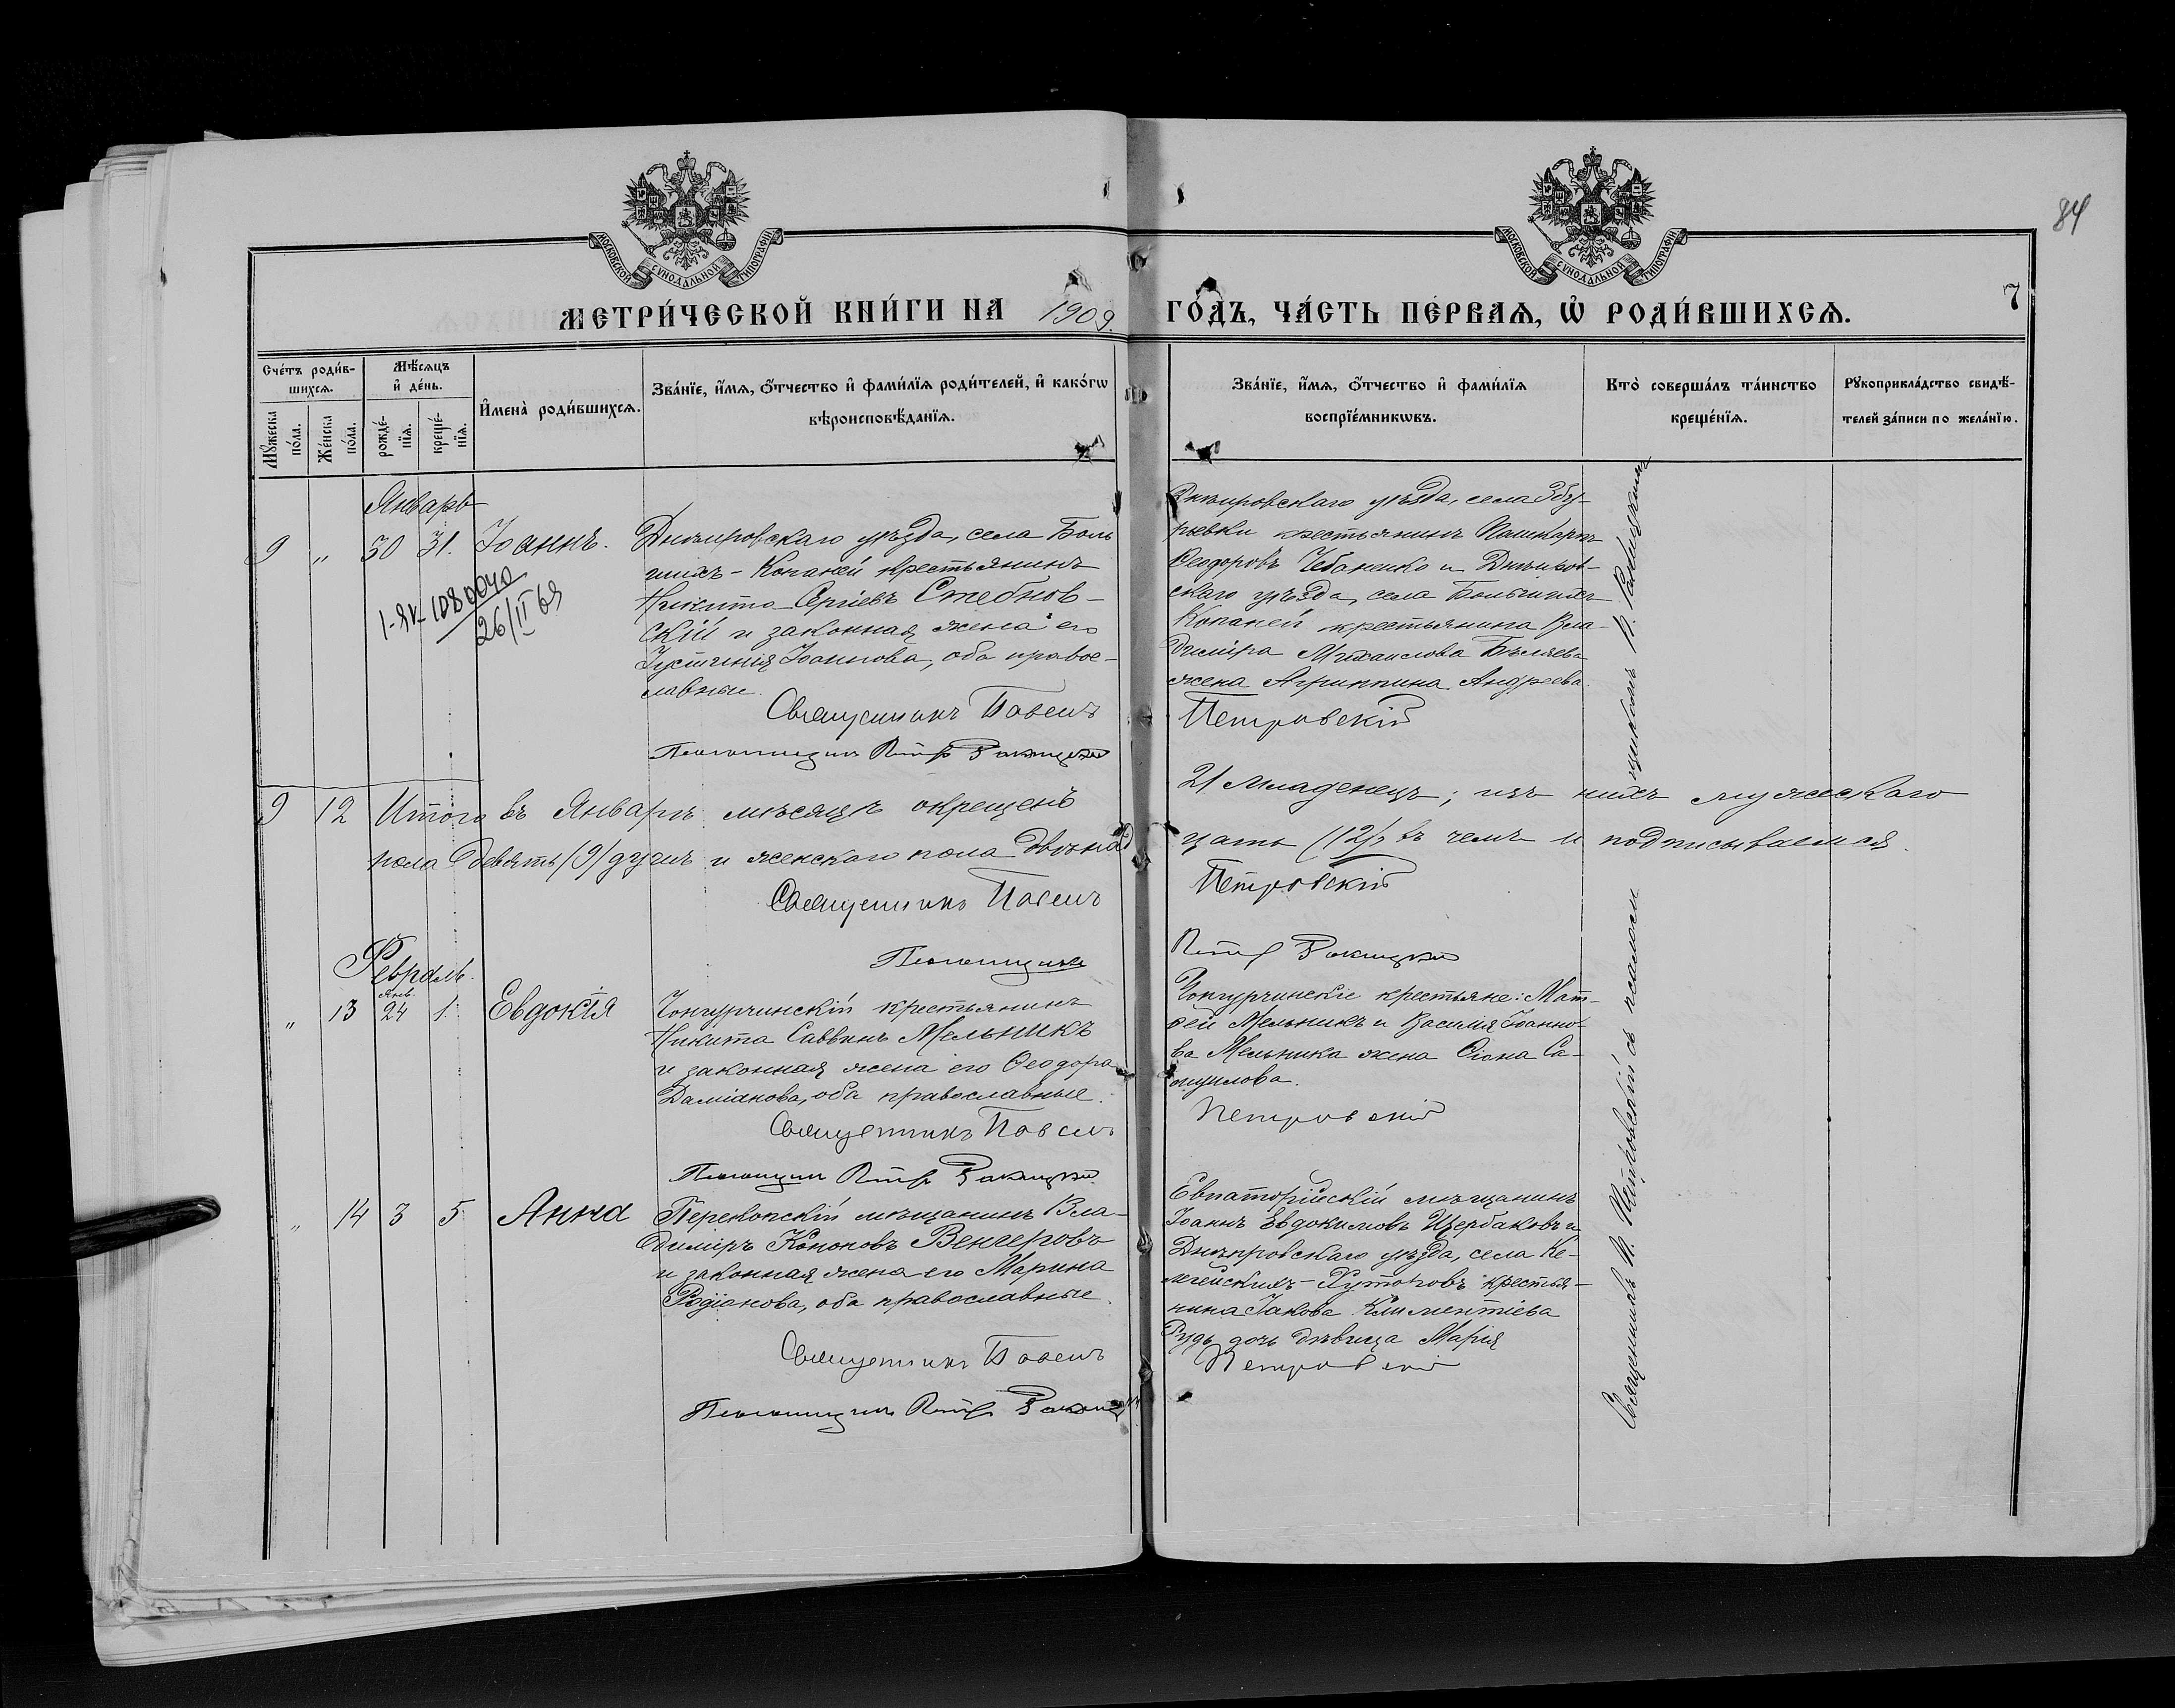 84
МОСКОВСКОЙ СѴНОДАЛЬНОЙ ТИПОГРАФІИ
МОСКОВСКОЙ СѴНОДАЛЬНОЙ ТИПОГРАФІИ
МЕТРИ́ЧЕСКОЙ КНИ́ГИ НА 1909. ГО́ДЪ, ЧА́СТЬ ПЕ́РВАѦ, Ѡ҆ РОДИ́ВШИХСѦ.
7
Сче́тъ роди́в-
шихсѧ.
Мꙋ́жеска
по́ла.
Же́нска
по́ла.
Мѣ́сѧцъ
и҆ де́нь.
рожде́-
нїѧ.
креще́-
нїѧ.
И҆мена̀ роди́вшихсѧ.
Зва́нїе, и҆́мѧ, ѻ҆́тчество и҆ фами́лїѧ роди́телей, и҆ како́гѡ
вѣроисповѣ́данїѧ.
Зва́нїе, и҆́мѧ, ѻ҆́тчество и҆ фами́лїѧ
воспрїе́мникѡвъ.
Кто̀ соверша́лъ та́инство
креще́нїѧ.
Рꙋкоприкла́дство свидѣ́-
телей за́писи по жела́нїю.
Январь
9 „ 30 31. Іоаннъ.
Днѣпровскаго уѣзда, села Боль
шихъ-Копаней крестьянинъ
Никита Сергіевъ Стебнов-
скій и законная жена его
Іустинія Іоаннова, оба право-
славные.
Священникъ Павелъ
Псаломщикъ Петръ Ракицкій
1-ЯК 1080040
26/II 69
Днѣпровскаго уѣзда, села Збу-
рьевки крестьянинъ
Ѳеодоровъ Чабаненко и Днѣпров-
скаго уѣзда, села Большихъ
Копаней крестьянина Вла-
диміра Михаилова Бѣляева
жена Агриппина Андреева.
Петровскій
9 12 Итого въ Январѣ мѣсяцѣ окрещено 21 младенецъ; изъ нихъ мужескаго
пола девять (9) душъ и женскаго пола двѣнад цать (12), въ чемъ и подписываемся.
Священникъ Павелъ Петровскій
Псаломщикъ Петръ Ракицкій
Февраль.
„ 13 Янв. 24 1. Евдокія
Чонгурчинскій крестьянинъ
Никита Саввинъ Мельникъ
и законная жена его Ѳеодора
Даміанова, оба православные.
Священникъ Павелъ
Псаломщикъ Петръ Ракицкій
Чонгурчинскіе крестьяне: Мат-
ѳей Мельникъ и Василія Іоанно-
ва Мельника жена Са-
муилова.
Петровскій
„ 14 3 5 Анна
Перекопскій мѣщанинъ Вла-
димiръ Кононовъ Венгеровъ
и законная жена его Марина
Родіонова, оба православные.
Священникъ Павелъ
Псаломщикъ Петръ Ракицкій
Евпаторійскій мѣщанинъ
Іоаннъ Евдокимовъ Щербаковъ и
Днѣпровскаго уѣзда, села Ке-
легейскихъ-Хуторовъ крестья-
нина Іакова Климентіева
Рудь дочь дѣвица Марія
Петровскій
Священникъ П. Петровскій съ псалом-
щикомъ П. Ракицкимъ